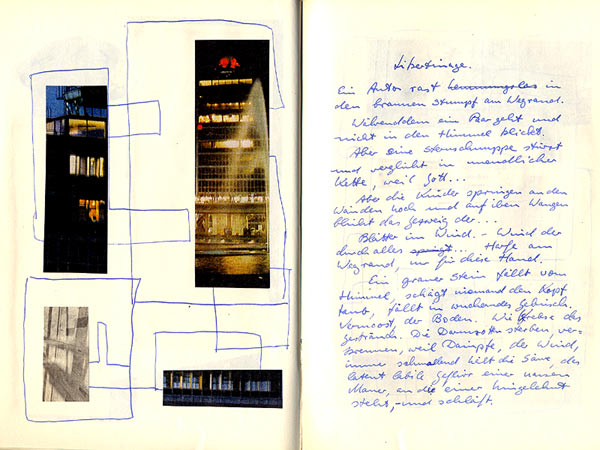 Libertinage.
Ein Autor rast hemmungslos in
den braunen Stumpf am Wegrand.
Währenddem ein Paar geht und
nicht in den Himmel blickt.
Aber eine Sternschnuppe stürzt
und verglüht in unendlicher
Kette, weil Gott...
Aber die Kinder springen an den
Wänden hoch und auf ihren Wangen
blüht das Gezweig der...
Blätter im Wind. - Wind der
durch alles ... Harfe am
Wegrand, nur für diese Hand.
Ein grauer Stein fällt vom
Himmel, schlägt niemand den Kopf
taub, fällt in wucherndes Gebüsch.
Vermoost der Boden. Wie Krebse des
Gestrands. Die sterben, ver-
brennen, weil Dämpfe, der Wind,
immer hilt die Säue, des
latent labile Geflüst einer neuen
Mauer, an die einer hingelehnt
steht, - und schläft.